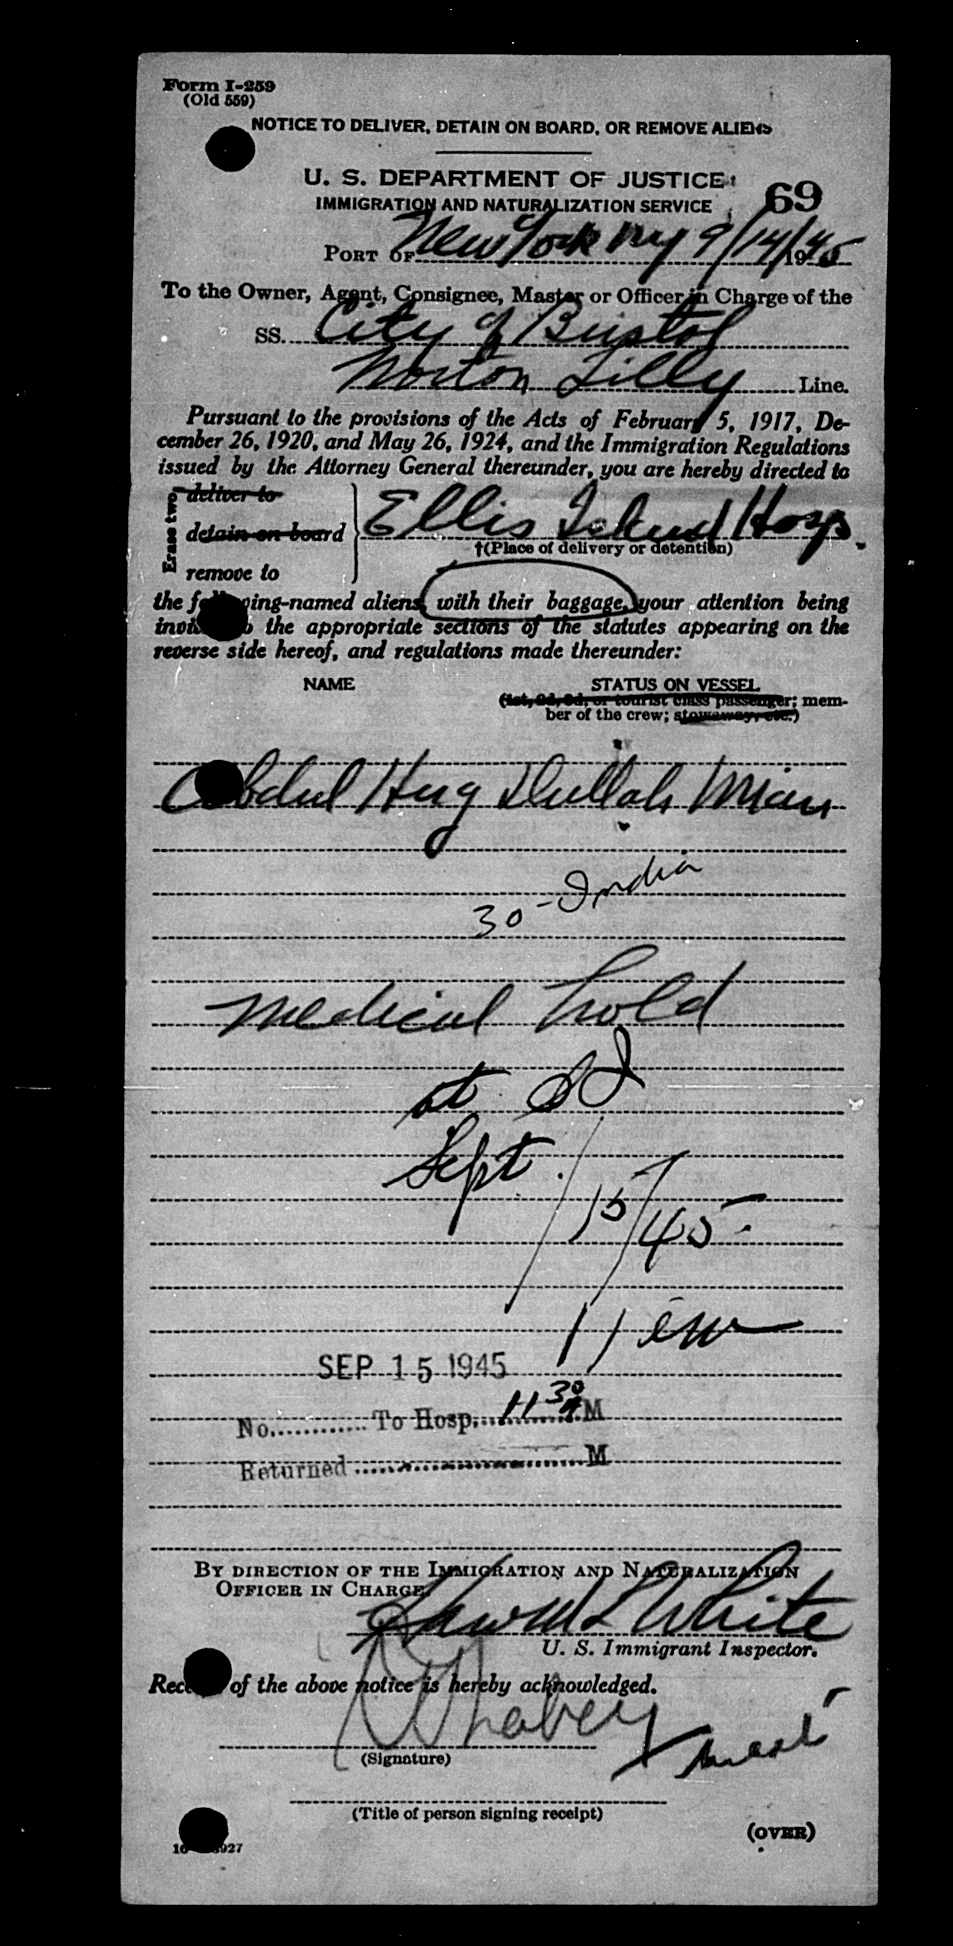 Form I-259
(Old 559)
NOTICE TO DELIVER, DETAIN ON BOARD, OR REMOVE ALIENS
U. S. DEPARTMENT OF JUSTICE
IMMIGRATION AND NATURALIZATION SERVICE
69
PORT OF New York NY 9/14/1945
To the Owner, Agent, Consignee, Master or Officer in Charge of the
SS. City of Bristol
Norton Lilly Line.
Pursuant to the provisions of the Acts of February 5, 1917, De-
cember 26, 1920, and May 26, 1924, and the Immigration Regulations
issued by the Attorney General thereunder, you are hereby directed to
Erase two
deliver to
detain on board
remove to
Ellis Island Hosp.
†(Place of delivery or detention)
the following-named aliens, with their baggage, your attention being
invited to the appropriate sections of the statutes appearing on the
reverse side hereof, and regulations made thereunder:
NAME
STATUS ON VESSEL
(1st, 2d, 3d, or tourist class passenger; mem-
ber of the crew; stowaway, etc.)
Abdul Huq Dullah Mian
30 - India
Medical hold
at
Sept. / 15 / 45
11
SEP 15 1945
No. To Hosp. 11 30 A M
Returned M
BY DIRECTION OF THE IMMIGRATION AND NATURALIZATION
OFFICER IN CHARGE.
White
U. S. Immigrant Inspector.
Receipt of the above notice is hereby acknowledged.
(Signature)
(Title of person signing receipt)
(OVER)